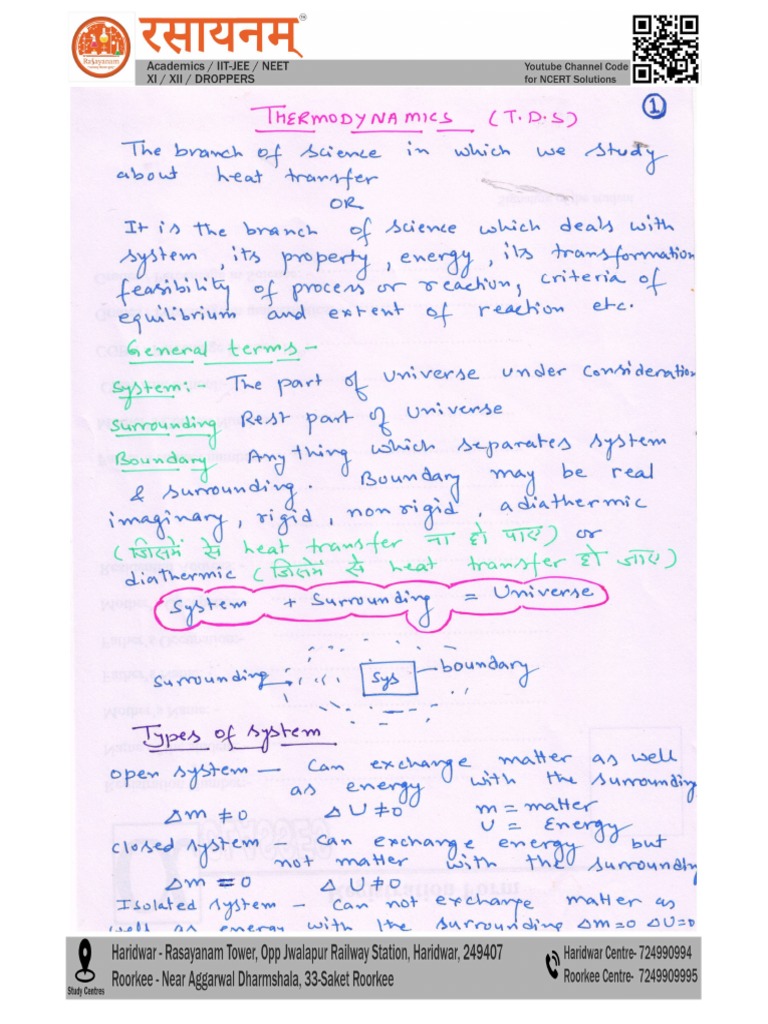 रसायनम्
Rasayanam
Academics / IIT-JEE / NEET
XI / XII / DROPPERS
Youtube Channel Code
for NCERT Solutions
1
THERMODYNAMICS (T.D.S)
The branch of science in which we study
about heat transfer
OR
It is the branch of science which deals with
system, its property, energy, its transformation
feasibility of process or reaction, criteria of
equilibrium and extent of reaction etc.
General terms -
System:- The part of universe under consideration
Surrounding Rest part of universe
Boundary Any thing which separates system
& surrounding. Boundary may be real
imaginary, rigid, non rigid, adiathermic
(जिसमें से heat transfer ना हो पाए) or
diathermic (जिसमें से heat transfer हो जाए)
System + Surrounding = Universe
surrounding Sys boundary
Types of system
open system - Can exchange matter as well
as energy with the surrounding
Δm ≠0 ΔU≠0 m = matter
U = Energy
closed system - Can exchange energy but
not matter with the surrounding
Δm = 0 ΔU≠0
Isolated system - Can not exchange matter as
well as energy with the surrounding Δm=0 ΔU=0
Study Centres
Haridwar - Rasayanam Tower, Opp Jwalapur Railway Station, Haridwar, 249407
Roorkee - Near Aggarwal Dharmshala, 33-Saket Roorkee
Haridwar Centre- 7249909994
Roorkee Centre- 7249909995